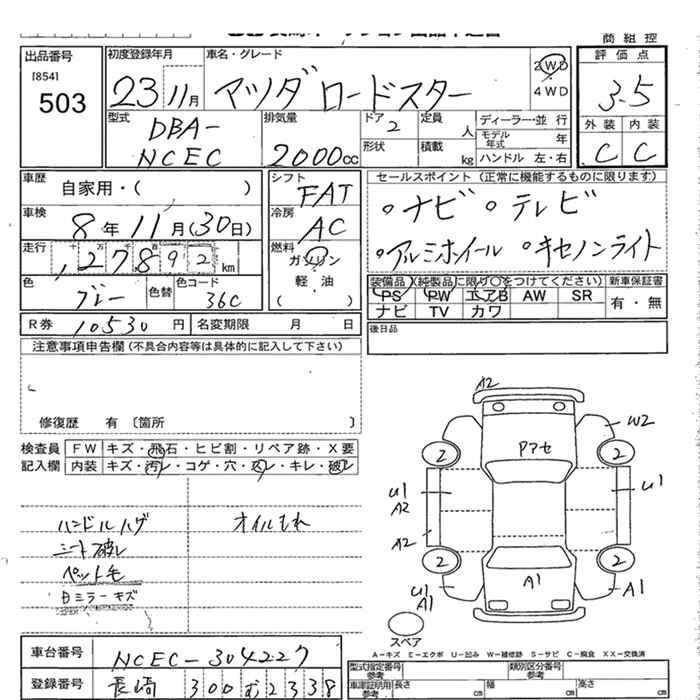 商組控
出品番号
[854]
503
初度登録年月
23 11月
車名・グレード
マツダ ロードスター
2WD
4WD
評価点
3.5
外装 内装
C C
型式
DBA-
NCEC
排気量
2000cc
ドア 2
形状
定員 人
積載 kg
ディーラー・並行
モデル年式 年
ハンドル 左・右
車歴
自家用・( )
車検
8年 11月(30日)
走行
127,892 km
色
ブルー
色替
色コード
36C
シフト
FAT
冷房
AC
燃料
ガソリン
軽・油
( )
セールスポイント(正常に機能するものに限ります)
○ナビ ○テレビ
○アルミホイール ○キセノンライト
装備品(純製品に限り○をつけてください)
PS PW エアB AW SR
ナビ TV カワ
新車保証書
有・無
R券 10530円
名変期限 月 日
後日品
注意事項申告欄(不具合内容等は具体的に記入して下さい)
修復歴 有〔箇所 〕
検査員
記入欄
FW キズ・飛石・ヒビ割・リペア跡・X要
内装 キズ・汚レ・コゲ・穴・スレ・キレ・破レ
ハンドルハゲ オイルもれ
シート破レ
ペット毛
日ミラーキズ
A2
W2
Pアセ
2 2
U1
A2
U1
A2
2 2
U1
A1
A1
A1
スペア
A-キズ E-エクボ U-凹み W-補修跡 S-サビ C-腐食 XX-交換済
車台番号
NCEC-304227
登録番号
長崎 300 む 2338
型式指定番号
参考
類別区分番号
参考
車庫証明用
参考
長さ cm 幅 cm 高さ cm